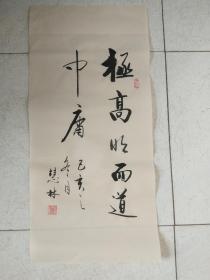 極高明而道
中庸
己亥之
冬月
慧林